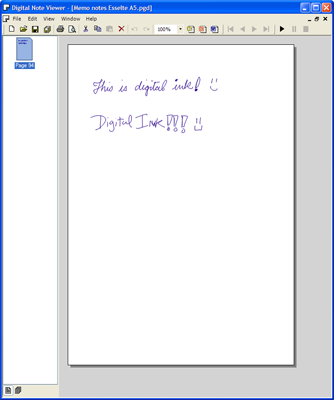 Digital Note Viewer - [Memo notes Esselte A5.pgd]
File Edit View Insert Tools Window Help
100%
Page 94
This is digital ink! :)
Digital Ink!!! :)